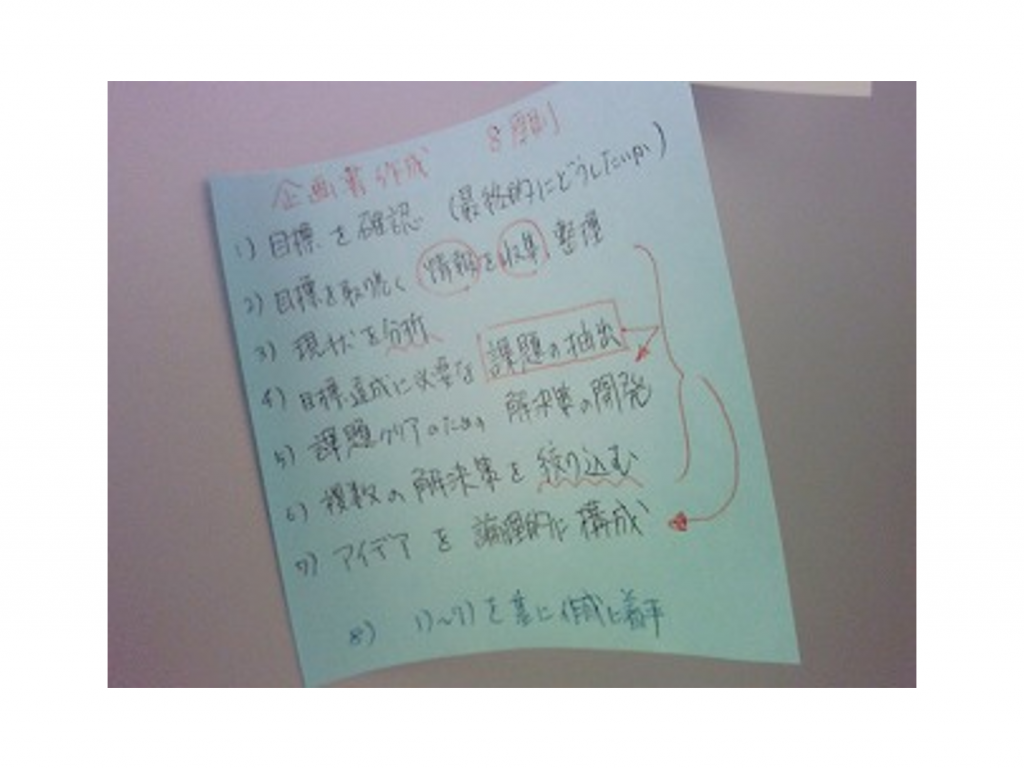 企画書作成 8原則
1) 目標を確認 (最終的にどうしたいか)
2) 目標を取り巻く 情報を収集、整理
3) 現状を分析
4) 目標達成に必要な 課題の抽出
5) 課題クリアのため 解決策の開発
6) 複数の解決策を絞り込む
7) アイデアを 論理的に構成
8) 1)〜7)を基に作成に着手